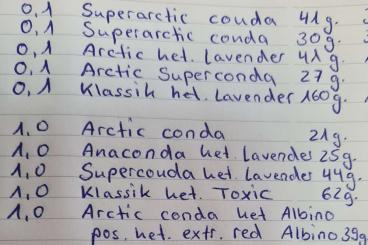 0,1 Superarctic conda 41g.
0,1 Superarctic conda 30g.
0,1 Arctic het. lavender 41g.
0,1 Arctic Superconda 27g.
0,1 Klassik het. Lavender 160g.
1,0 Arctic conda 21g.
1,0 Anaconda het Lavender 25g.
1,0 Superconda het. Lavender 44g.
1,0 Klassik het. Toxic 62g.
1,0 Arctic conda het Albino
pos. het. extr. red Albino 39g